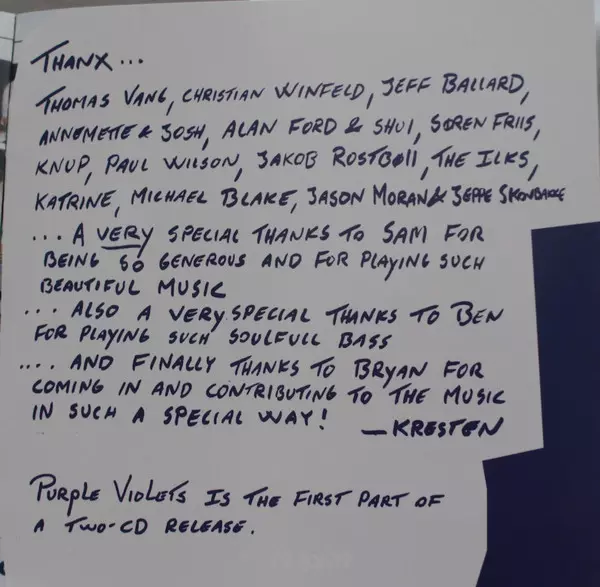 THANX...
THOMAS VANG, CHRISTIAN WINFELD, JEFF BALLARD,
ANNEMETTE & JOSH, ALAN FORD & SHUI, SØREN FRIIS,
KNUP, PAUL WILSON, JAKOB ROSTBØll, THE ILKS,
KATRINE, MICHAEL BLAKE, JASON MORAN & JEPPE SKOVBAKKE
... A VERY SPECIAL THANKS TO SAM FOR
BEING SO GENEROUS AND FOR PLAYING SUCH
BEAUTIFUL MUSIC
... ALSO A VERY SPECIAL THANKS TO BEN
FOR PLAYING SUCH SOULFULL BASS
.... AND FINALLY THANKS TO BRYAN FOR
COMING IN AND CONTRIBUTING TO THE MUSIC
IN SUCH A SPECIAL WAY!
—KRESTEN
PURPlE VIOlETS IS THE FIRST PART OF
A TWO-CD RELEASE.